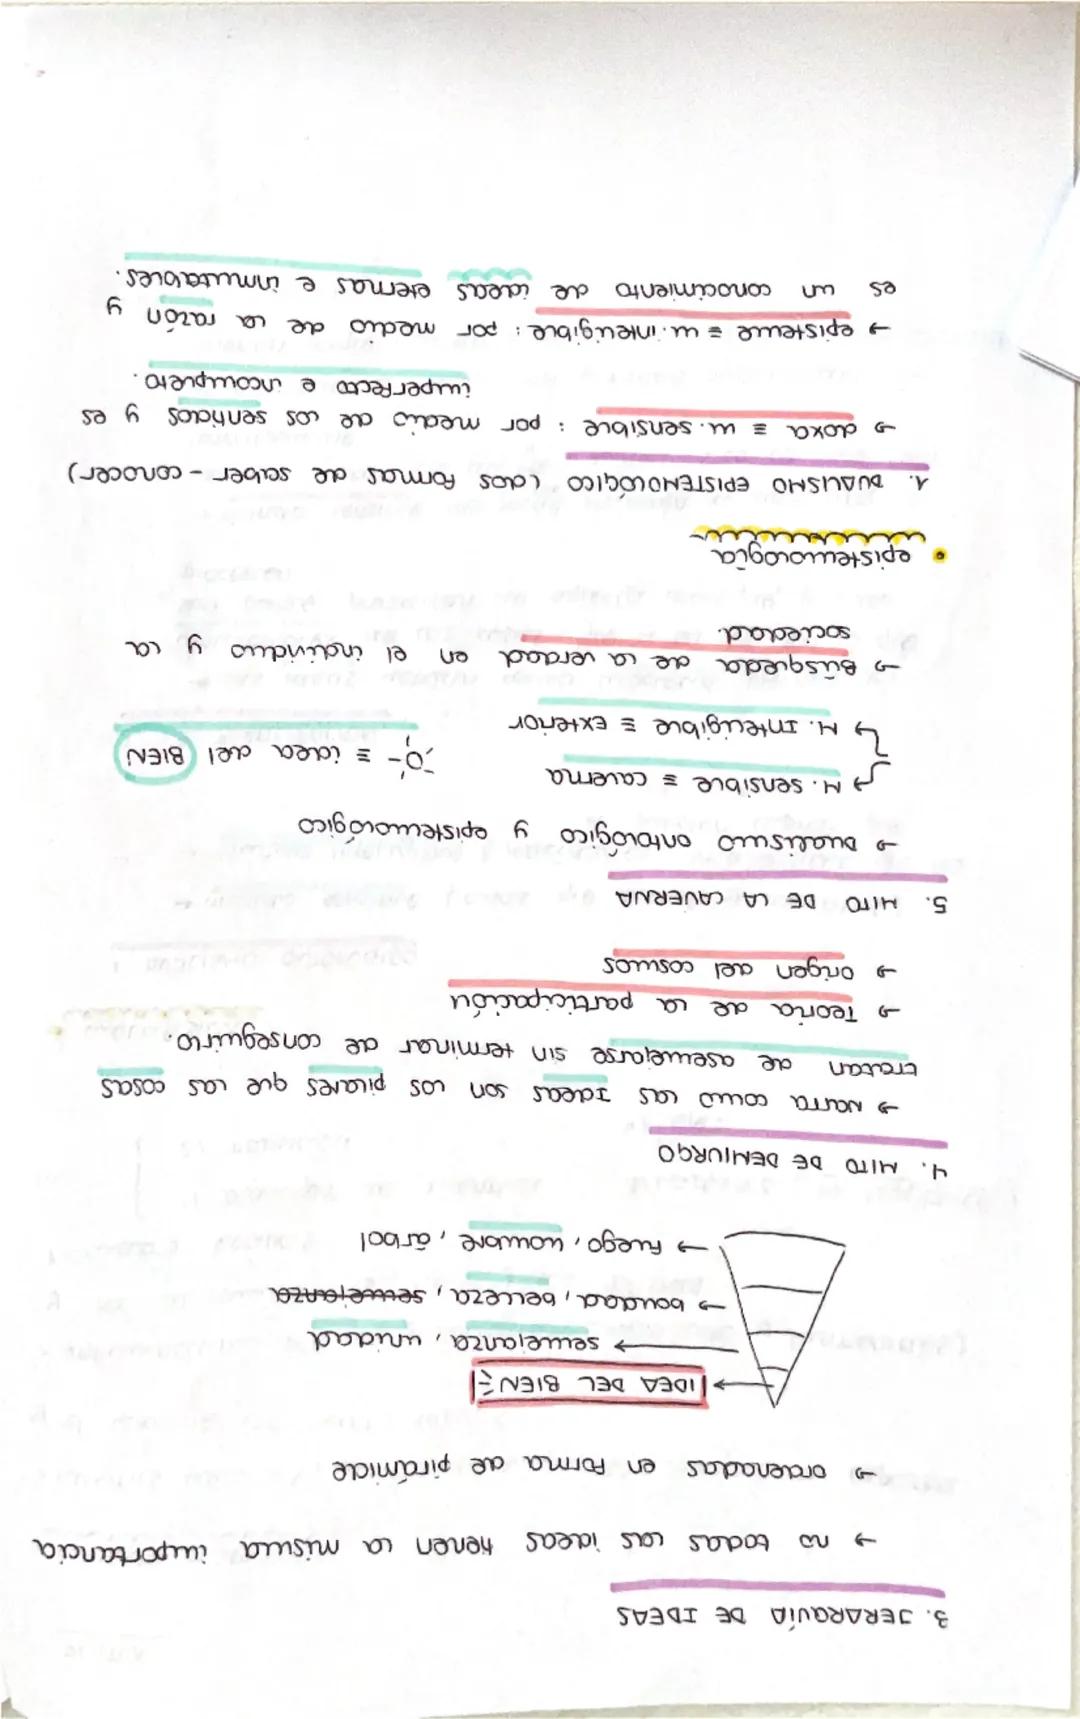 3. JERARQUÍA DE IDEAS
→ no todas las ideas tienen la misma importancia
→ ordenadas en forma de pirámide
→ IDEA DEL BIEN
→ semejanza, unidad
→ bondad, belleza, semejanza
→ fuego, hombre, árbol
4. MITO DE DEMIURGO
→ Narra como las Ideas son los pilares que las cosas
tratan de asemejarse sin terminar de conseguirlo.
→ Teoría de la participación
→ origen del cosmos
5. MITO DE LA CAVERNA
→ Dualismo ontológico y epistemológico
→ M. sensible ≡ caverna
→ M. Inteligible ≡ Exterior
≡ idea del BIEN
→ Búsqueda de la verdad en el individuo y la
sociedad.
• epistemología
1. DUALISMO EPISTEMOLÓGICO (dos formas de saber - conocer)
→ doxa ≡ m. sensible : por medio de los sentidos y es
imperfecto e incompleto.
→ episteme ≡ m. inteligible : por medio de la razón y
es un conocimiento de ideas eternas e inmutables.